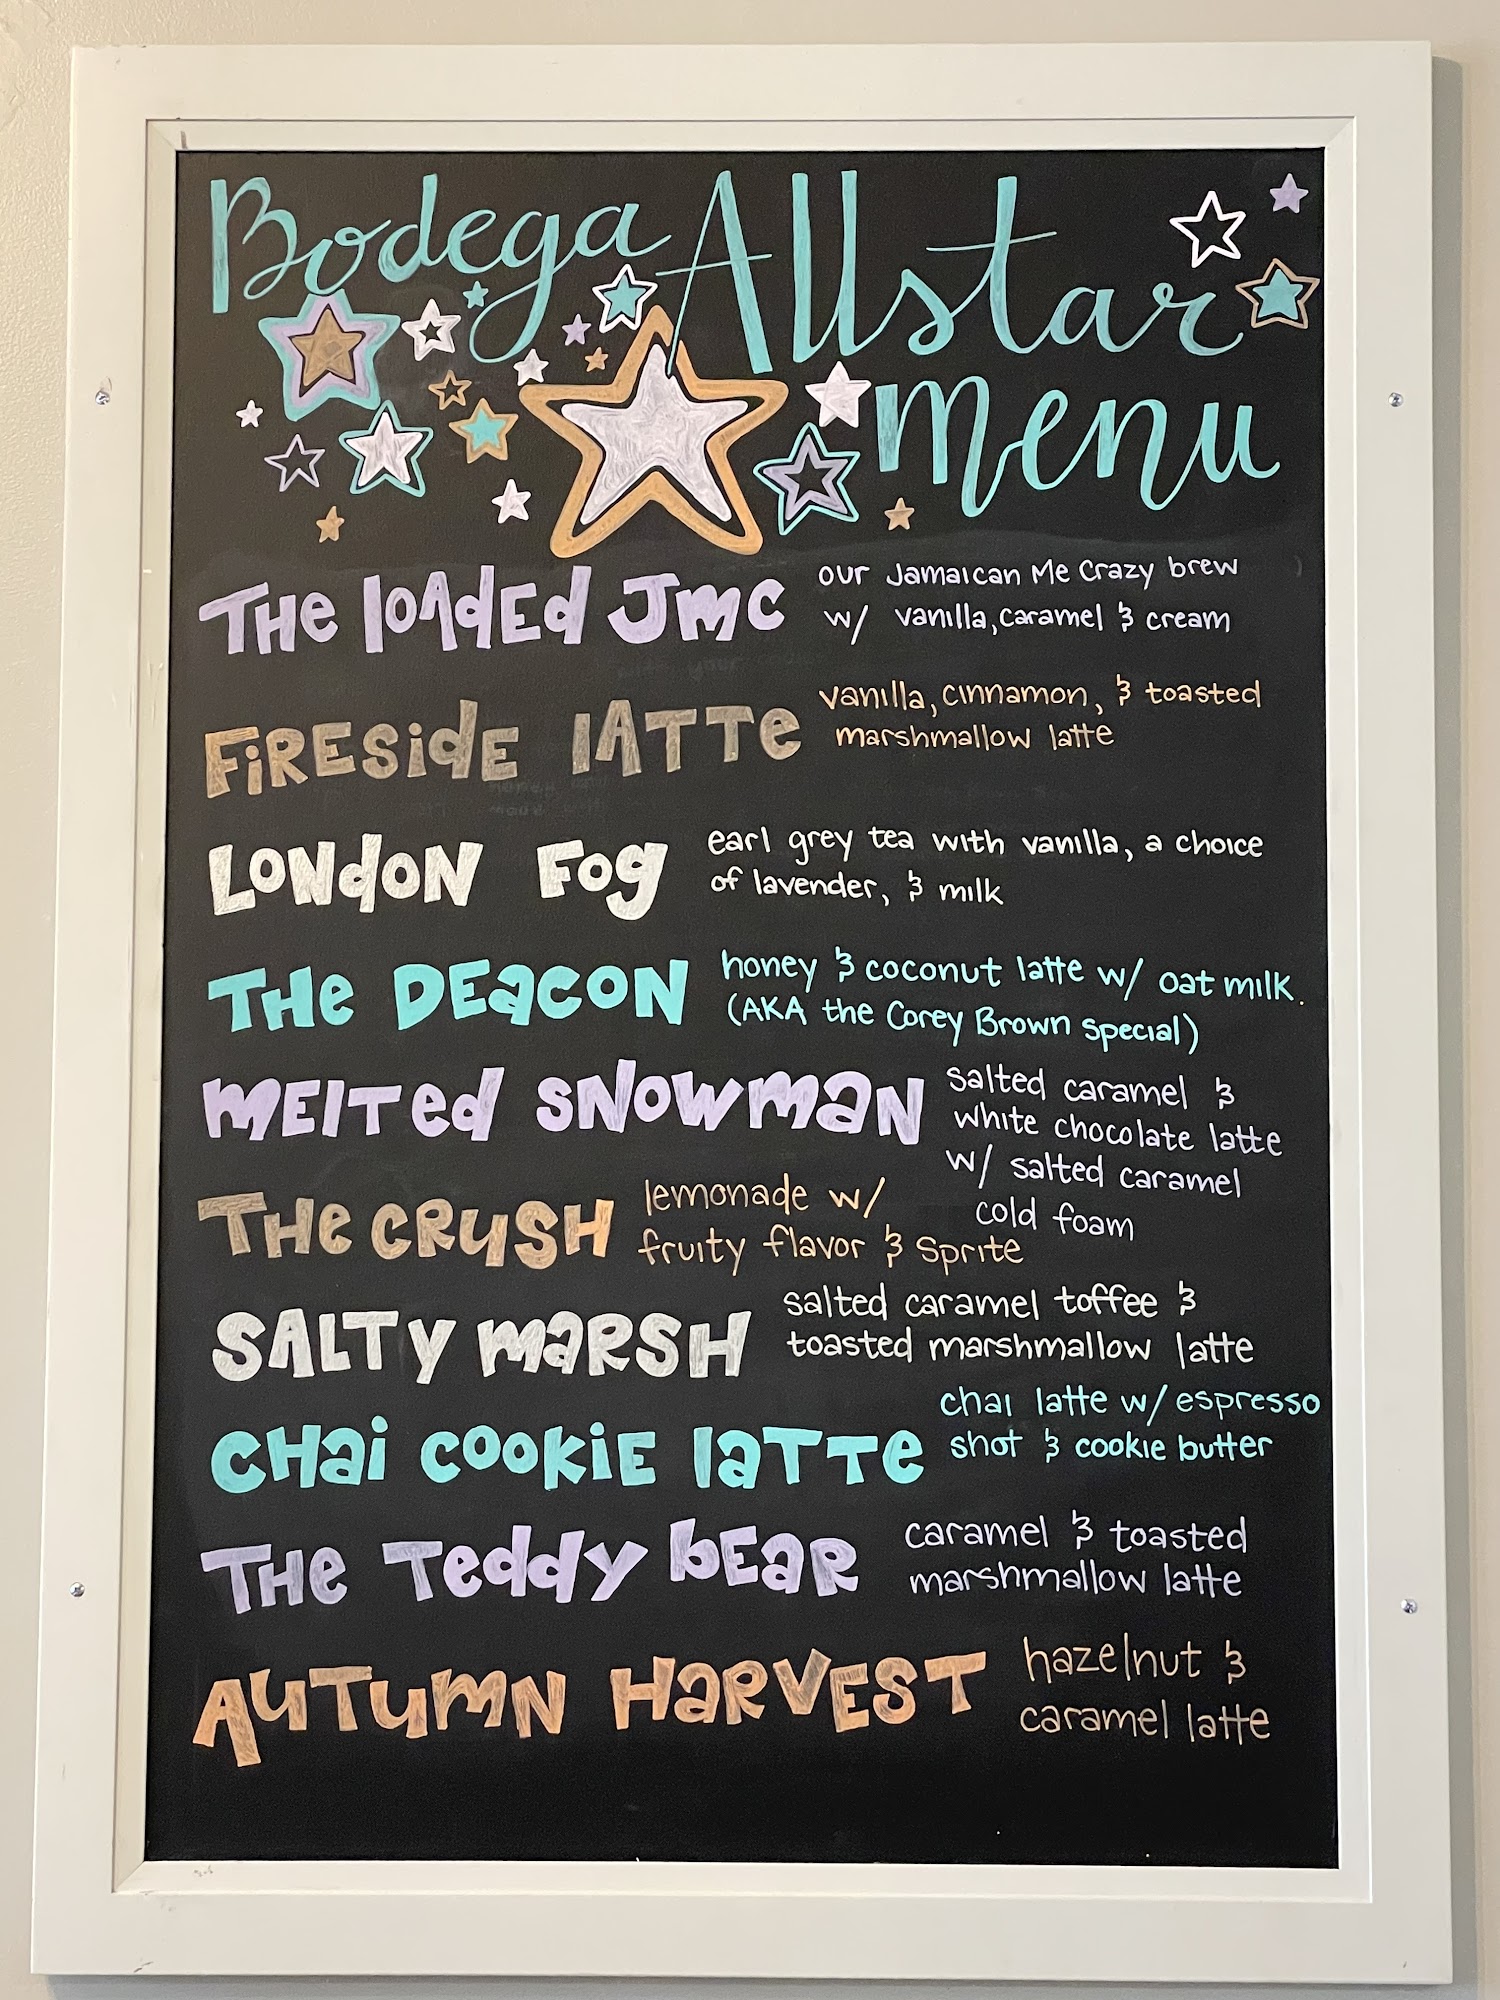 Bodega Allstar
menu
THe loAdEd Jmc
our Jamaican Me Crazy brew
w/ vanilla, caramel & cream
FiRESidE lATTe
vanilla, cinnamon, & toasted
marshmallow latte
LONdON Fog
earl grey tea with vanilla, a choice
of lavender, & milk
THe DEacoN
honey & coconut latte w/ oat milk.
(AKA the Corey Brown special)
mElTed SNowmaN
salted caramel &
white chocolate latte
w/ salted caramel
cold foam
THe CRuSH
lemonade w/
fruity flavor & Sprite
SALTy maRSH
salted caramel toffee &
toasted marshmallow latte
CHai COOkiE laTTe
chai latte w/ espresso
shot & cookie butter
THe Teddy bEaR
caramel & toasted
marshmallow latte
AuTumN HaRVEST
hazelnut &
caramel latte